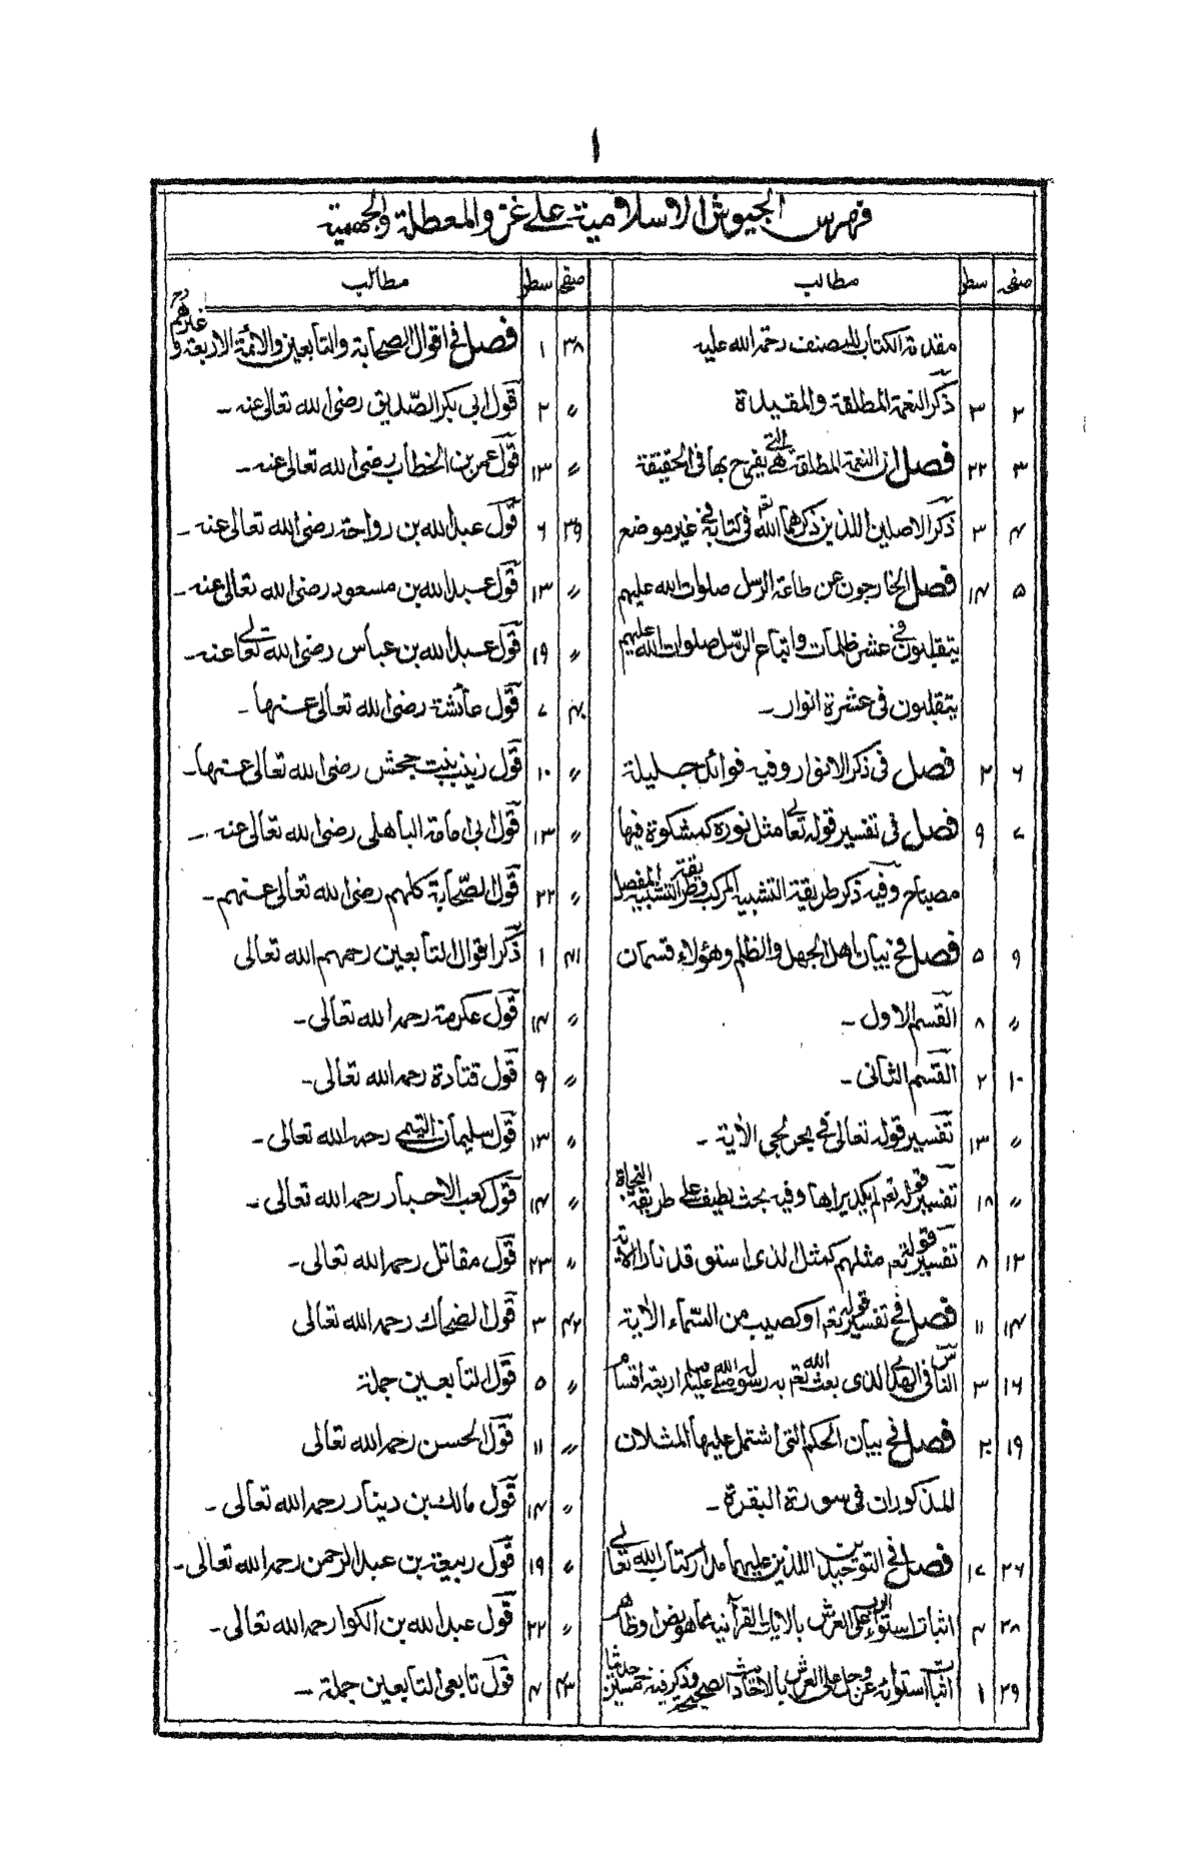 ١
فهرس الجيوش الاسلامية على غزو المعطلة والجهمية
صفح سطر مطالب
مقدمة الكتاب للمصنف رحمة الله عليه
٢ ٣ ذكر النعمة المطلقة والمقيدة
٣ ٢٢ فصل ان النعمة المطلقة هي التي يفرح بها في الحقيقة
٤ ٣ ذكر الاصلين الذين ذكرهما الله تعم في كتابه في غير موضع
٥ ١٤ فصل الخارجون عن طاعة الرسل صلوات الله عليهم
يتقلبون في عشر ظلمات واتباع الرسل صلوات الله عليهم
يتقلبون في عشرة انوار۔
٦ ٢ فصل في ذكر الانوار وفيه فوائد جليلة
٧ ٩ فصل في تفسير قوله تعالى مثل نوره كمشكوة فيها
مصباح وفيه ذكر طريقة التشبيه المركب وطريقة التشبيه المفصل
٩ ٥ فصل في بيان اهل الجهل والظلم وهؤلاء قسمان
〃 ٨ القسم الاول۔
١٠ ٢ القسم الثاني۔
〃 ١٣ تفسير قوله تعالى في بحر لجي الآية۔
〃 ١٨ تفسير قوله تعم لم يكد يراها وفيه بحث لطيف على طريقة النحاة
١٢ ٨ تفسير قوله تعم مثلهم كمثل الذى استوقد نارا الآية
١٤ ١١ فصل في تفسير قوله تعم او كصيب من السماء الآية
١٦ ٣ الناس في الهدى الذى بعث الله تعم به رسوله صلى الله عليه وسلم اربعة اقسام
١٩ ٢٠ فصل في بيان الحكم التى اشتمل عليها المثلان
المذكورات في سورة البقرة۔
٢٦ ١٧ فصل في التوحيدين اللذين عليهما مدار كتاب الله تعالى
٢٨ ٤ اثبات استواء الرب على العرش بالآيات القرآنية بما هو نص او ظاهر
٢٩ ١ اثبات استوائه عز وجل على العرش بالاحاديث الصحيحة وذكر فيه خمسين حديثا
صفح سطر مطالب
٣٨ ١ فصل في اقوال الصحابة والتابعين والائمة الاربعة وغيرهم
〃 ٢ قول ابي بكر الصديق رضى الله تعالى عنه۔
〃 ١٣ قول عمر بن الخطاب رضى الله تعالى عنه۔
٣٩ ٦ قول عبد الله بن رواحة رضى الله تعالى عنه۔
〃 ١٣ قول عبد الله بن مسعود رضى الله تعالى عنه۔
〃 ١٩ قول عبد الله بن عباس رضى الله تعالى عنه۔
٤٠ ٧ قول عائشة رضى الله تعالى عنها۔
〃 ١٠ قول زينب بنت جحش رضى الله تعالى عنها۔
〃 ١٣ قول ابي امامة الباهلى رضى الله تعالى عنه۔
〃 ٢٢ قول الصحابة كلهم رضى الله تعالى عنهم۔
٤١ ١ ذكر اقوال التابعين رحمهم الله تعالى
〃 ١٤ قول عكرمة رحمه الله تعالى۔
〃 ٩ قول قتادة رحمه الله تعالى۔
〃 ١٣ قول سليمان التيمى رحمه الله تعالى۔
〃 ١٤ قول كعب الاحبار رحمه الله تعالى۔
〃 ٢٣ قول مقاتل رحمه الله تعالى۔
٤٢ ٣ قول الضحاك رحمه الله تعالى
〃 ٥ قول التابعين جملة
〃 ١١ قول الحسن رحمه الله تعالى
〃 ١٤ قول مالك بن دينار رحمه الله تعالى۔
〃 ١٩ قول ربيعة بن عبد الرحمن رحمه الله تعالى۔
〃 ٢٢ قول عبد الله بن الكوا رحمه الله تعالى۔
٤٣ ٤ قول تابعى التابعين جملة۔